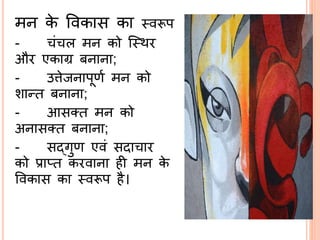 मन के विकास का स्वरूप
- चंचल मन को स्थिर
और एकाग्र बनाना;
- उत्तेजनापूर्ण मन को
शान्त बनाना;
- आसक्त मन को
अनासक्त बनाना;
- सद्गुण एवं सदाचार
को प्राप्त करवाना ही मन के
विकास का स्वरूप है।